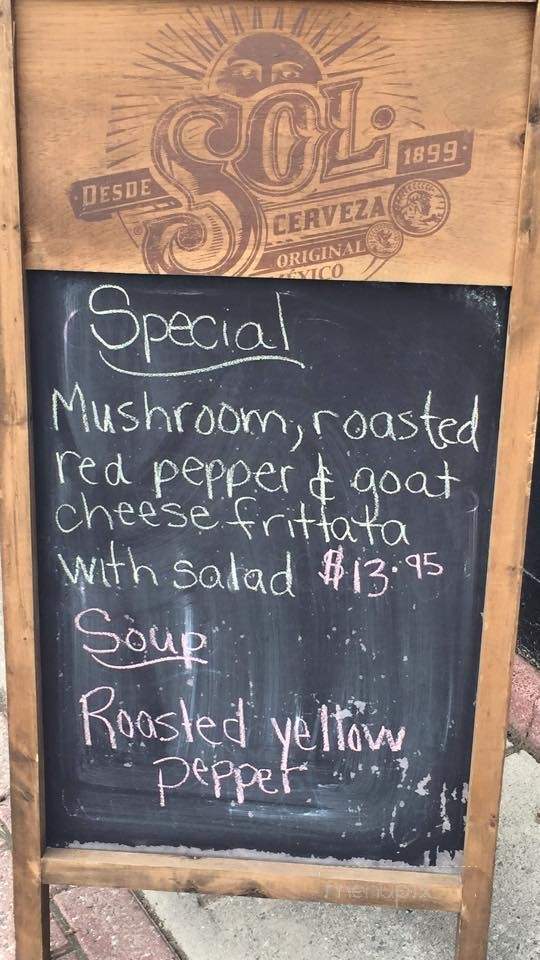 DESDE SOL 1899
CERVEZA
ORIGINAL
MÉXICO
Special
Mushroom, roasted
red pepper & goat
cheese frittata
with salad $13.95
Soup
Roasted yellow
pepper
menupix